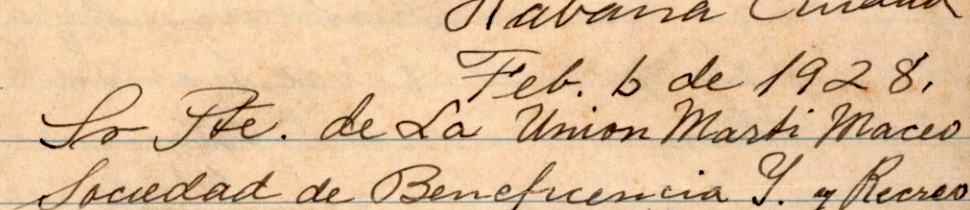 Habana Ciudad
Feb. 6 de 1928.
Sr Pte. de La Union Marti Maceo
Sociedad de Beneficencia Y. y Recreo